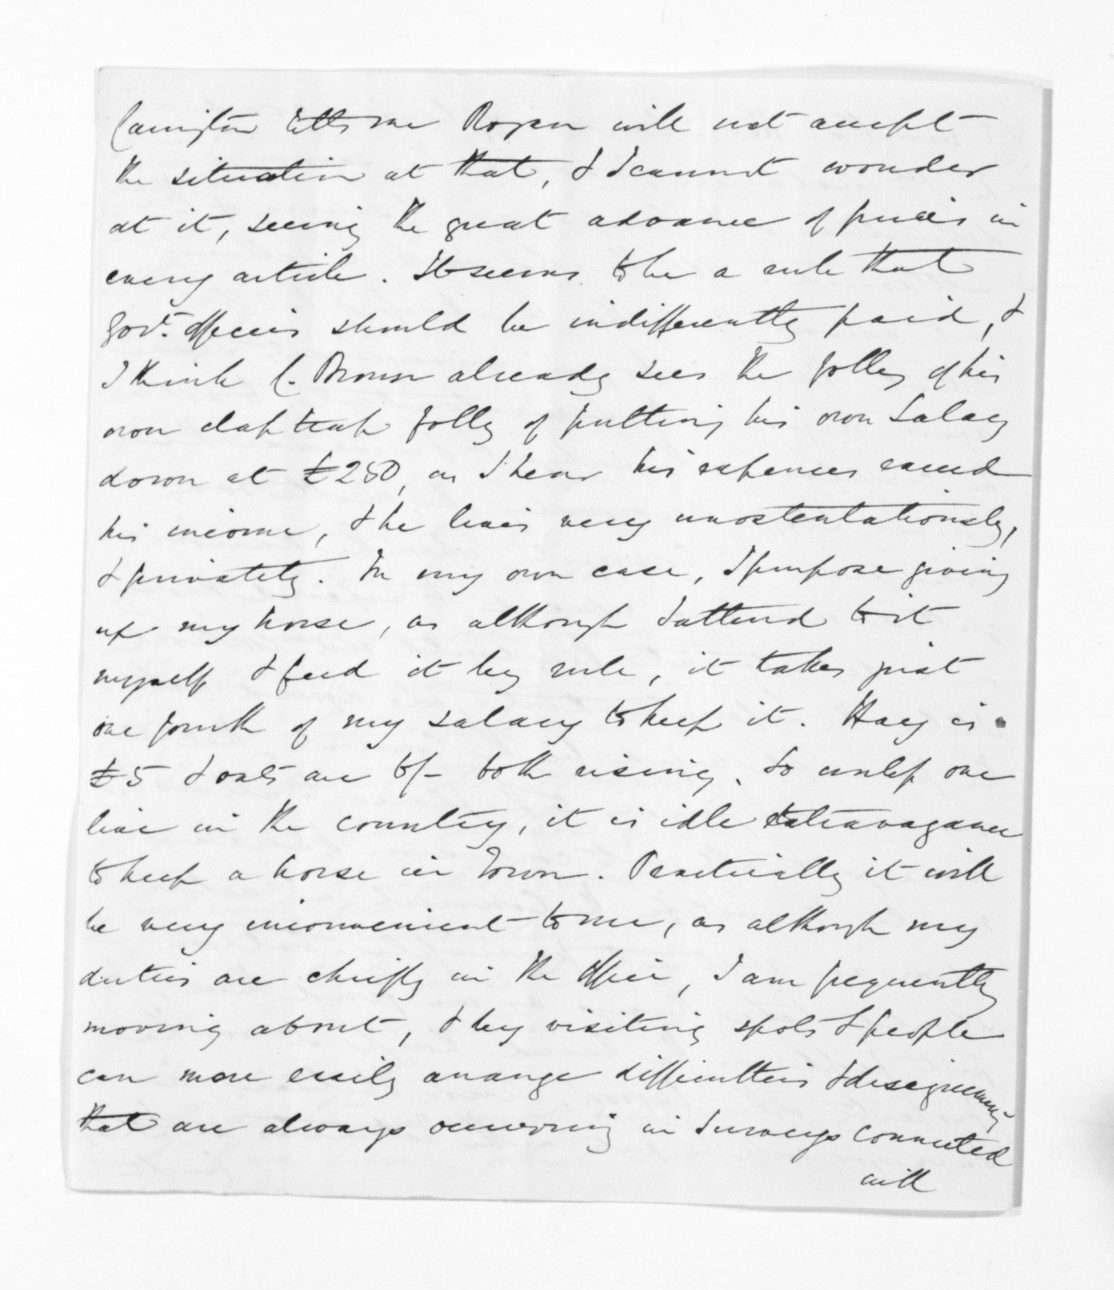 Carrington tells me Rogan will not accept
the situation at that, & I cannot wonder
at it, seeing the great advance of prices in
every article. It seems to be a rule that
Govt. officers should be indifferently paid, &
I think C. Brown already sees the folly of his
own clap trap folly of putting his own Salary
down at £250, as I hear his expences exceed
his income, & he lives very unostentatiously,
& privately. In my own case, I purpose giving
up my horse, as although I attend to it
myself & feed it by rule, it takes just
one fourth of my salary to keep it. Hay is
£5 & oats are 6/- both rising. So unless one
live in the country, it is idle extravagance
to keep a horse in Town. Practically it will
be very inconvenient to me, as although my
duties are chiefly in the office, I am frequently
moving about, & by visiting spots & people
can more easily arrange difficulties &
that are always occurring in Surveys connected
with